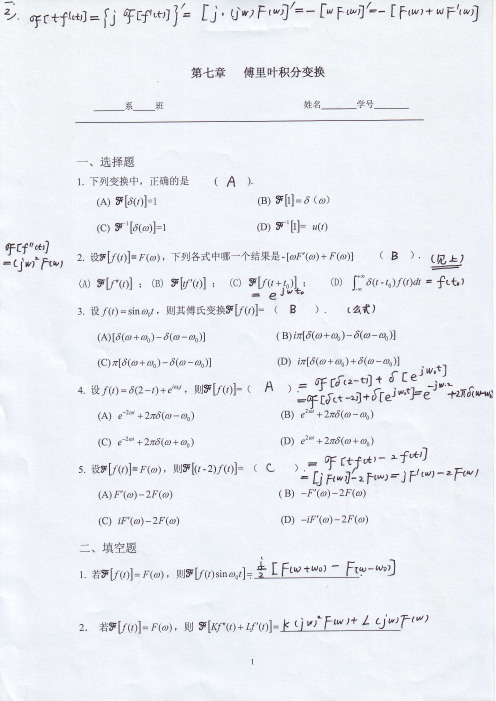 二. 𝓕[tf'(t)]={j 𝓕[f'(t)]}'= [j·(jw)F(w)]'=-[wF(w)]'=-[F(w)+wF'(w)]
第七章 傅里叶积分变换
______系_____班 姓名_______学号_______
一、选择题
1. 下列变换中，正确的是 ( A ).
(A) 𝓕[δ(t)]=1 (B) 𝓕[1]=δ（ω）
(C) 𝓕⁻¹[δ(ω)]=1 (D) 𝓕⁻¹[1]= u(t)
𝓕[f''(t)]
=(jw)²F(w)
2. 设𝓕[f(t)]= F(ω)，下列各式中哪一个结果是-[ωF'(ω)+F(ω)] ( B ). (见上)
(A) 𝓕[f''(t)]；(B) 𝓕[tf'(t)]； (C) 𝓕[f(t+t₀)]； (D) ∫₋∞⁺∞ δ(t-t₀)f(t)dt = f(t₀)
= e^{jwt₀}
3. 设 f(t)=sin ω₀t，则其傅氏变换𝓕[f(t)]=（ B ）. (公式)
(A)[δ(ω+ω₀)-δ(ω-ω₀)] (B) iπ[δ(ω+ω₀)-δ(ω-ω₀)]
(C) π[δ(ω+ω₀)-δ(ω-ω₀)] (D) iπ[δ(ω+ω₀)+δ(ω-ω₀)]
4. 设 f(t)=δ(2-t)+e^{iω₀t}，则𝓕[f(t)]=( A ). = 𝓕[δ(2-t)]+δ[e^{jw₀t}]
=𝓕[δ(t-2)]+δ[e^{jw₀t}]=e^{-jw·2}+2πδ(w-w₀)
(A) e^{-2ωi}+2πδ(ω-ω₀) (B) e^{2ωi}+2πδ(ω-ω₀)
(C) e^{-2ωi}+2πδ(ω+ω₀) (D) e^{2ωi}+2πδ(ω+ω₀)
5. 设𝓕[f(t)]= F(ω)，则𝓕[(t-2)f(t)]=（ C ）. = 𝓕[tf(t)-2f(t)]
= [jF(w)]'-2F(w)=jF'(w)-2F(w)
(A) F'(ω)-2F(ω) (B) -F'(ω)-2F(ω)
(C) iF'(ω)-2F(ω) (D) -iF'(ω)-2F(ω)
二、填空题
1. 若𝓕[f(t)]= F(ω)，则𝓕[f(t)sin ω₀t]= j/2 [F(w+w₀) - F(w-w₀)]
2. 若𝓕[f(t)]= F(ω)，则 𝓕[Kf''(t)+Lf'(t)]= K(jw)²F(w)+L(jw)F(w)
1